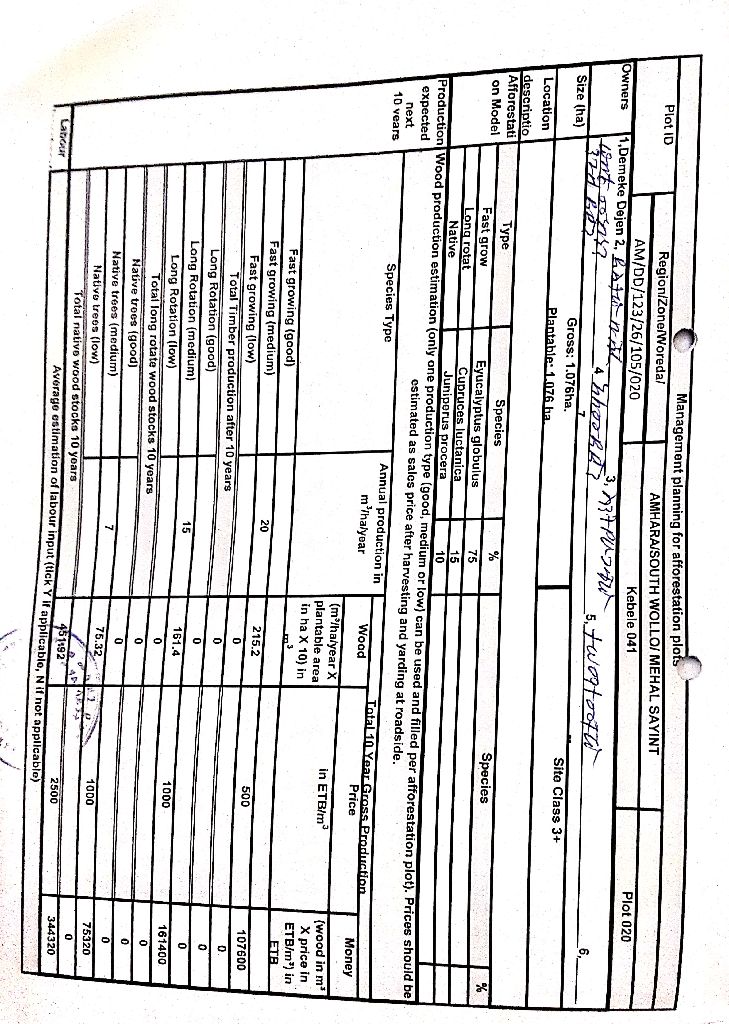 Management planning for afforestation plots
Plot ID
Region/Zone/Woreda/
AMHARA/SOUTH WOLLO/ MEHAL SAYINT
AM/DD/123/26/105/020
Kebele 041
Plot 020
Owners
1,Demeke Dejen 2,
3,
4
5,
6,
Size (ha)
Gross: 1.076ha.
Plantable: 1.076 ha
Site Class 3+
Location descriptio
Afforestati on Model
Type
Species
%
Species
%
Fast grow
Eyucalyptus globulus
75
Long rotat
Cupruces luctanica
15
Native
Juniperus procera
10
Production expected next 10 years
Wood production estimation (only one production type (good, medium or low) can be used and filled per afforestation plot). Prices should be
estimated as sales price after harvesting and yarding at roadside.
Species Type
Annual production in m³/ha/year
Total 10 Year Gross Production
Wood
Price
Money
(m³/ha/year X plantable area in ha X 10) in m³
in ETB/m³
(wood in m³ X price in ETB/m³) in ETB
Fast growing (good)
Fast growing (medium)
Fast growing (low)
20
215.2
500
107600
Total Timber production after 10 years
0
0
Long Rotation (good)
0
0
Long Rotation (medium)
0
Long Rotation (low)
15
161.4
1000
161400
Total long rotate wood stocks 10 years
0
0
Native trees (good)
0
0
Native trees (medium)
7
75.32
1000
75320
Native trees (low)
0
Total native wood stocks 10 years
451.92
2500
344320
Labour
Average estimation of labour input (tick Y if applicable, N if not applicable)